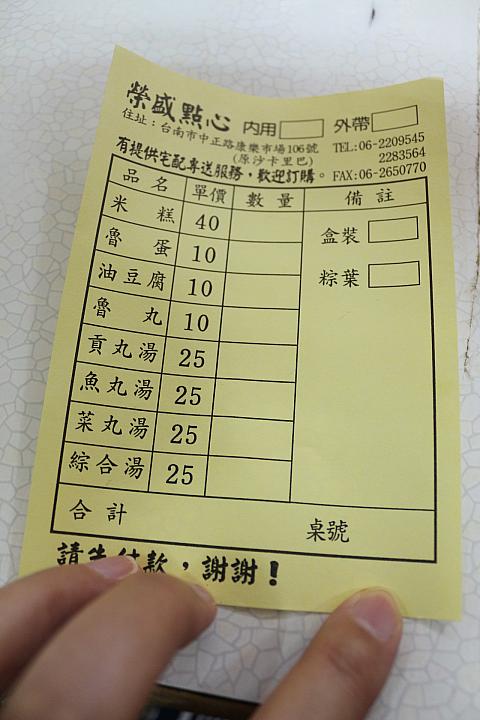 榮盛點心 內用 外帶
住址：台南市中正路康樂市場106號 TEL:06-2209545
(原沙卡里巴) 2283564
有提供宅配專送服務，歡迎訂購。FAX:06-2650770
品名 單價 數量 備註
米糕 40
盒裝
魯蛋 10
粽葉
油豆腐 10
魯丸 10
貢丸湯 25
魚丸湯 25
菜丸湯 25
綜合湯 25
合計 桌號
請先付款，謝謝！